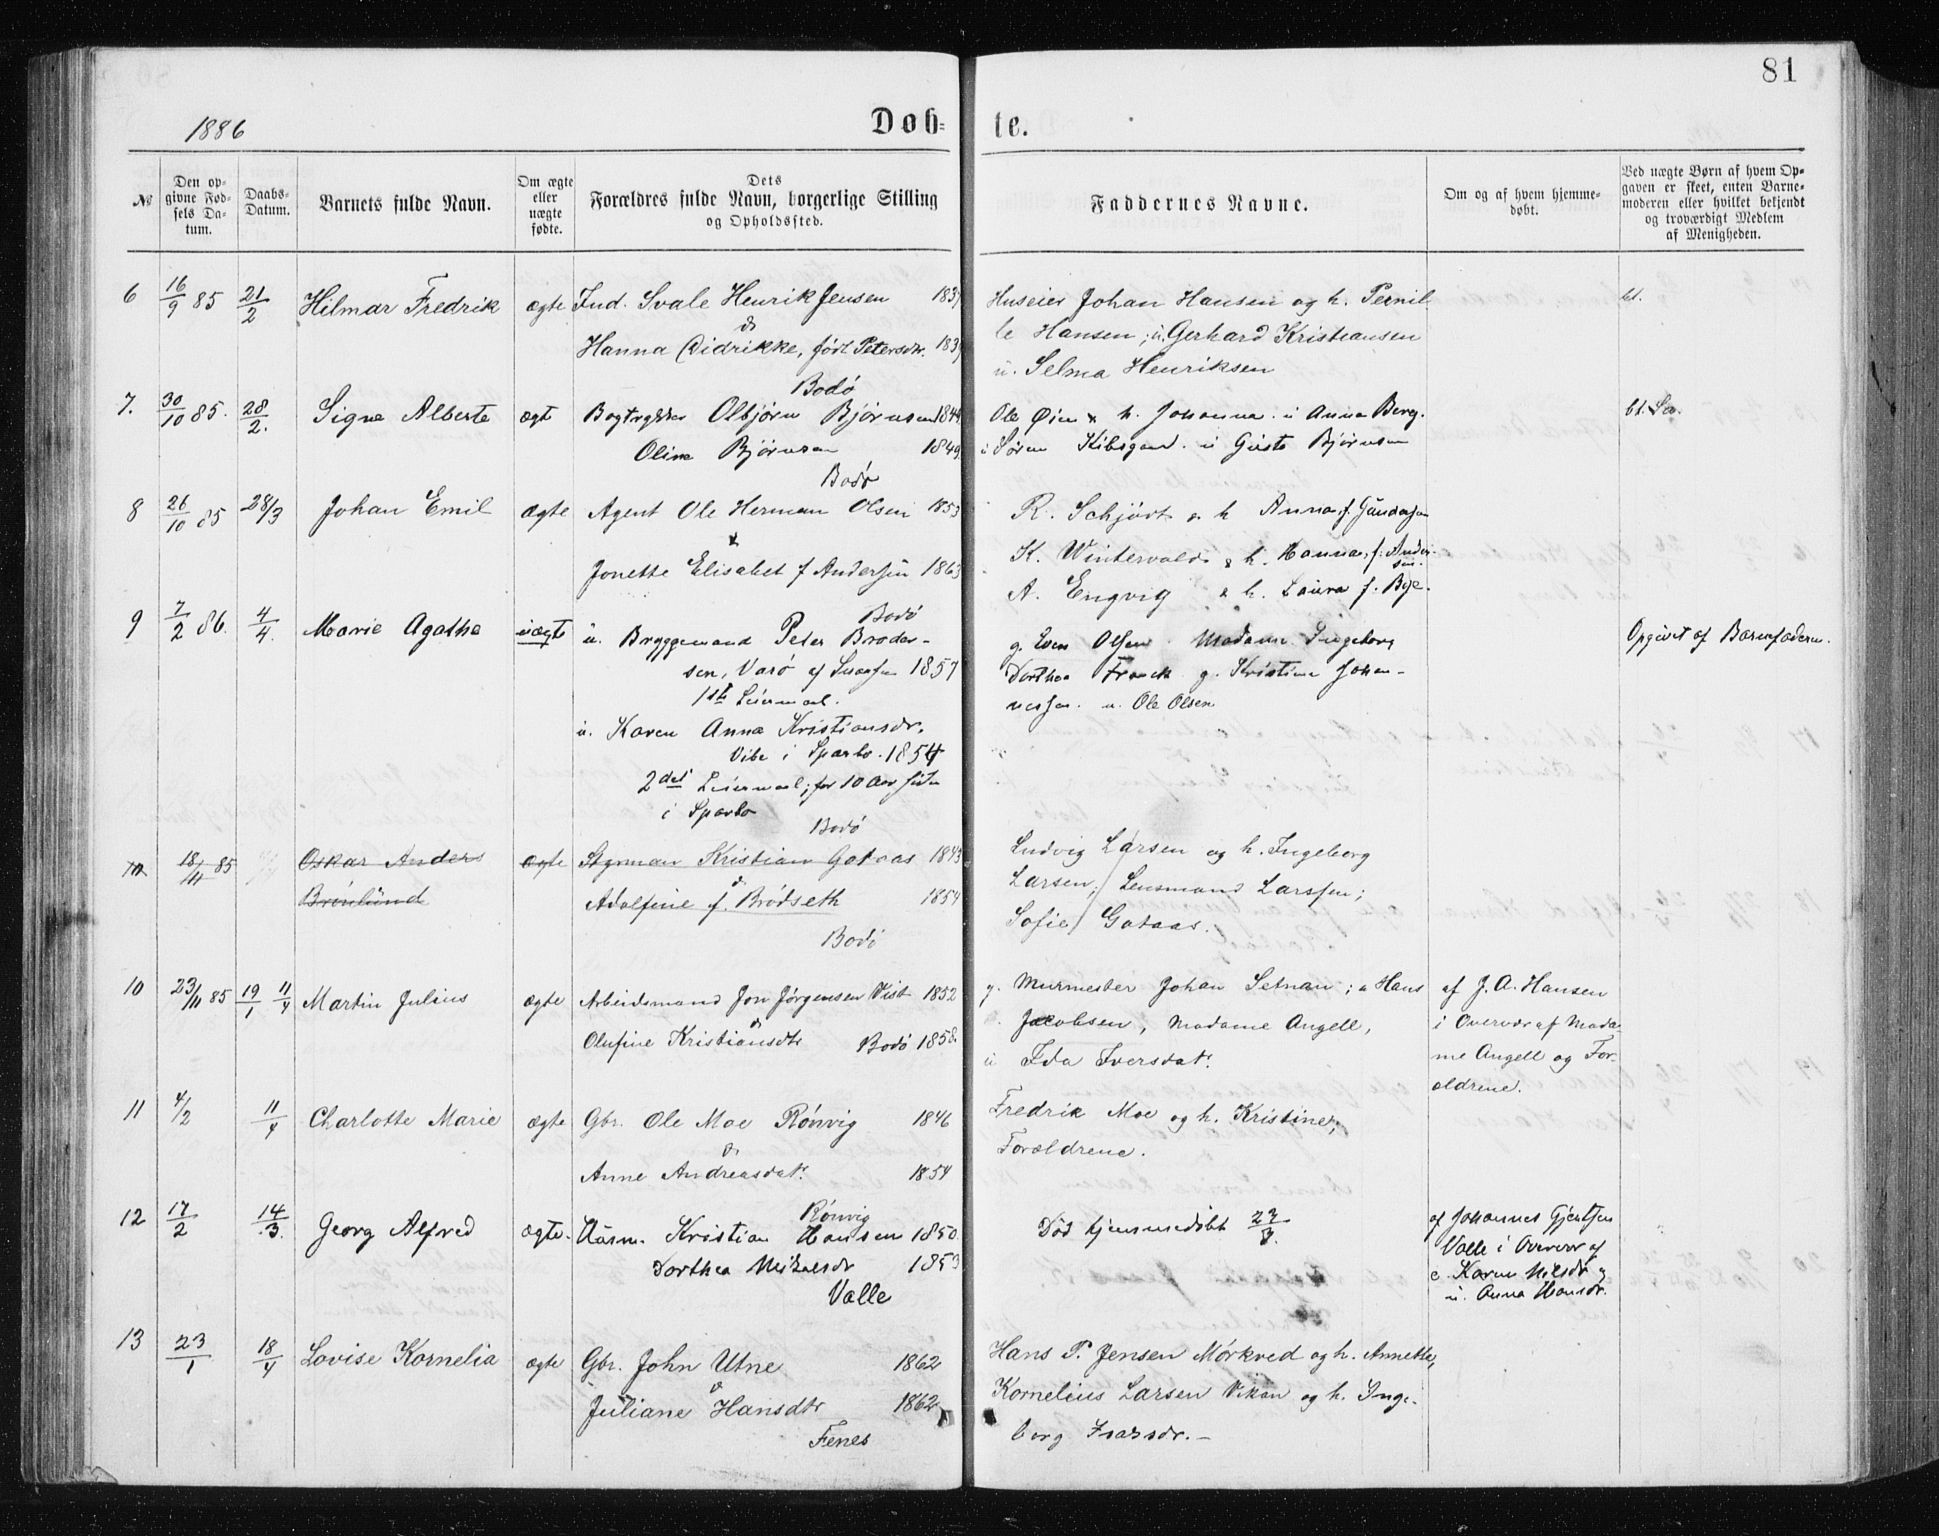 81
1886
Døb= te.
№
Den op-
givne Fød-
sels Da-
tum.
Daabs-
Datum.
Barnets fulde Navn.
Om ægte
eller
uægte
fødte.
Dets
Forældres fulde Navn, borgerlige Stilling
og Opholdssted.
Faddernes Navne.
Om og af hvem hjemme-
døbt.
Ved uægte Børn af hvem Op-
gaven er skeet, enten Barne-
moderen eller hvilket bekjendt
og troværdigt Medlem
af Menigheden.
6 16/9 85 21/2 Hilmar Fredrik ægte Ind. Svale Henrik Jensen
Hanna Didrikke, født Petersdtr.
Bodø
Huseier Johan Hansen og h. Pernil
le Hansen; u. Gerhard Kristiansen
u. Selma Henriksen
7. 30/10 85. 28/2. Signe Alberte ægt Bogtrykker Olbjørn Bjørnsen 1844
Oline Bjørnsen 1849.
Bodø
Ole Øien & h. Johanna. u Anna Berg.
u Søren u Bjørnsen
8 26/10 85 28/3 Johan Emil ægte Agent Ole Herman Olsen 1853
&
Jonette Elisabet f Andersen 1863
Bodø
R. Schjødt & h Anna f.
K. & h. Hanna, f. Ander-
sen.
A. Engvig & h. Laura f. Bye.
9 7/2 86. 4/4. Marie Agathe uægte u. Bryggemand Peter Broder-
sen, 1857
1ste Leiermaal.
u. Karen Anna Kristiansdr.
Vibe i Sparbo. 1854
2det Leiermaal; for 10 Aar siden
i Sparbo
Bodø
g. Even Olsen Madame Ingeborg
Dorthea Franck g. Kristine Johan-
nessen. u. Ole Olsen
Opgivet af Barnefaderen.
10 18/11 85 Oskar Anders
Brönlund
ægte Styrman Kristian Gataas 1843
&
Adolfine f. Brödseth 1854
Bodö
Ludvig Larsen og h. Ingeborg
Larsen; Lensmand Larssen;
Sofie Gataas.
10 23/11 85 19/1 11/4 Martin Julius ægte Arbeidsmand Jon Jørgensen Vist 1852
&
Olufine Kristiansdtr Bodø 1858.
g. Murmester Johan Setnan; u Hans
Jacobsen, Madame Angell,
u Ida Iversdatr.
af J. A. Hansen
i Overvær af Mada-
me Angell og For-
ældrene.
11 4/2 11/4 Charlotte Marie ægte Gbr. Ole Moe Rönvig 1846
&
Anne Andreasdatr. 1854
Rönvig
Fredrik Moe og h. Kristine;
Forældrene.
12 17/2 14/3. Georg Alfred ægte. Kristian Hansen 1850.
Dorthea Mikalsdr 1853
Valle
Död hjemmedöbt 23/3.
af Johannes Gjertsen
Valle i Overvær af
e. Karen Nilsdr og
u. Anna Hansdr.
13 23/1 18/4 Lovise Kornelia ægte Gbr. John Utne 1862
&
Juliane Hansdtr 1862
Fenes
Hans P. Jensen Mörkved og h. Annette,
Kornelius Larsen Vikan og h. Inge-
borg Isaksdr. –